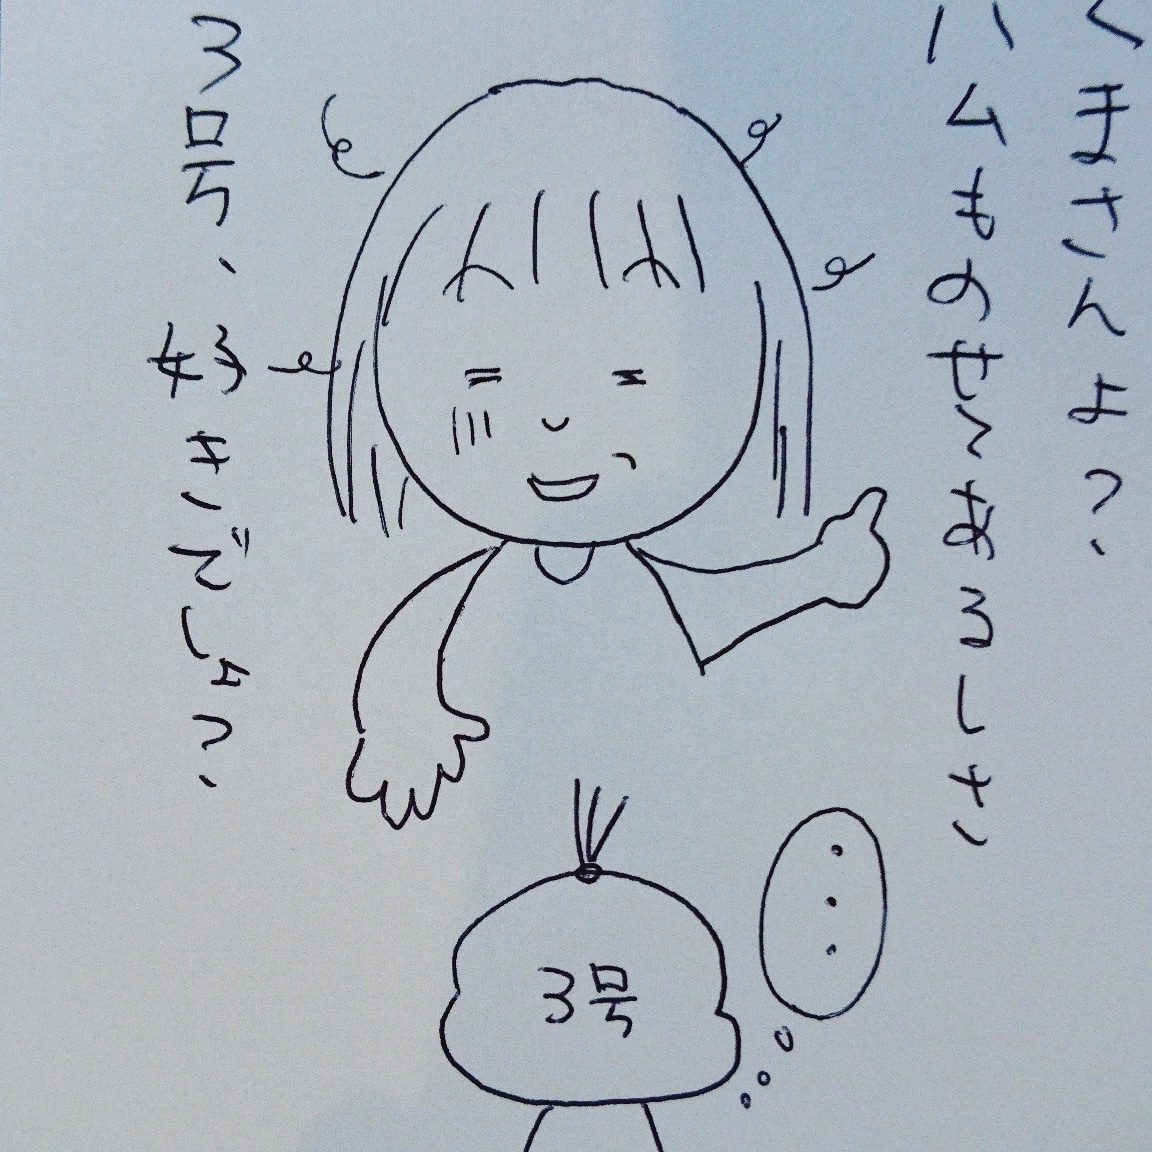 くまさんよ？
ハムものせてあるしさ
3号、好きでしょ？
…
3号